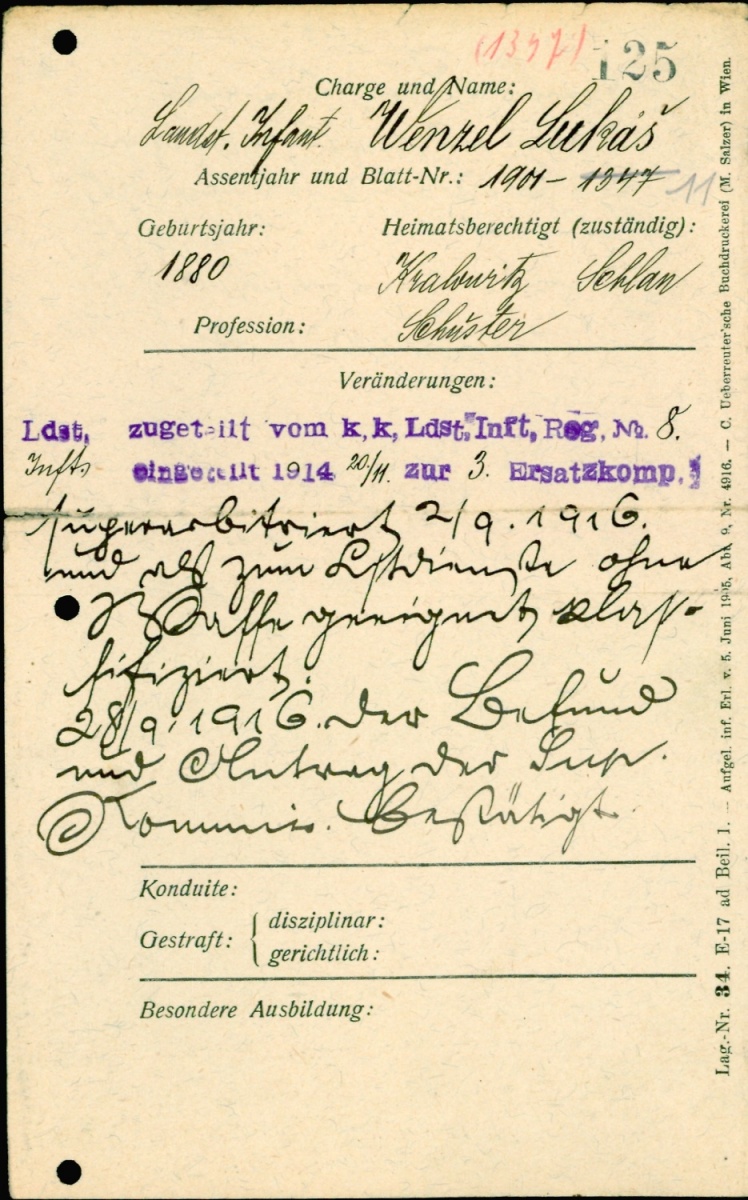 (1347) 125
Charge und Name:
Landst. Infant. Wenzel Lukáš
Assentjahr und Blatt-Nr.: 1901 - 1347 11
Geburtsjahr: Heimatsberechtigt (zuständig):
1880 Kralowitz Schlan
Profession: Schuster
Veränderungen:
Ldst. zugeteilt vom k.k. Ldst. Inft. Reg. No. 8.
Infts eingeteilt 1914 20/11. zur 3. Ersatzkomp.
superarbitriert 2/9. 1916.
und als zum Lstdienste ohne
Waffe geeignet klas-
sifiziert.
28/9. 1916. Der Befund
und Antrag der Sup.
Kommis. bestätigt.
Konduite:
Gestraft: { disziplinar:
gerichtlich:
Besondere Ausbildung:
Lag.-Nr. 34. E-17 ad Beil. 1. — Aufgel. inf. Erl. v. 5. Juni 1905, Abt. 9, Nr. 4916. — C. Ueberreuter'sche Buchdruckerei (M. Salzer) in Wien.